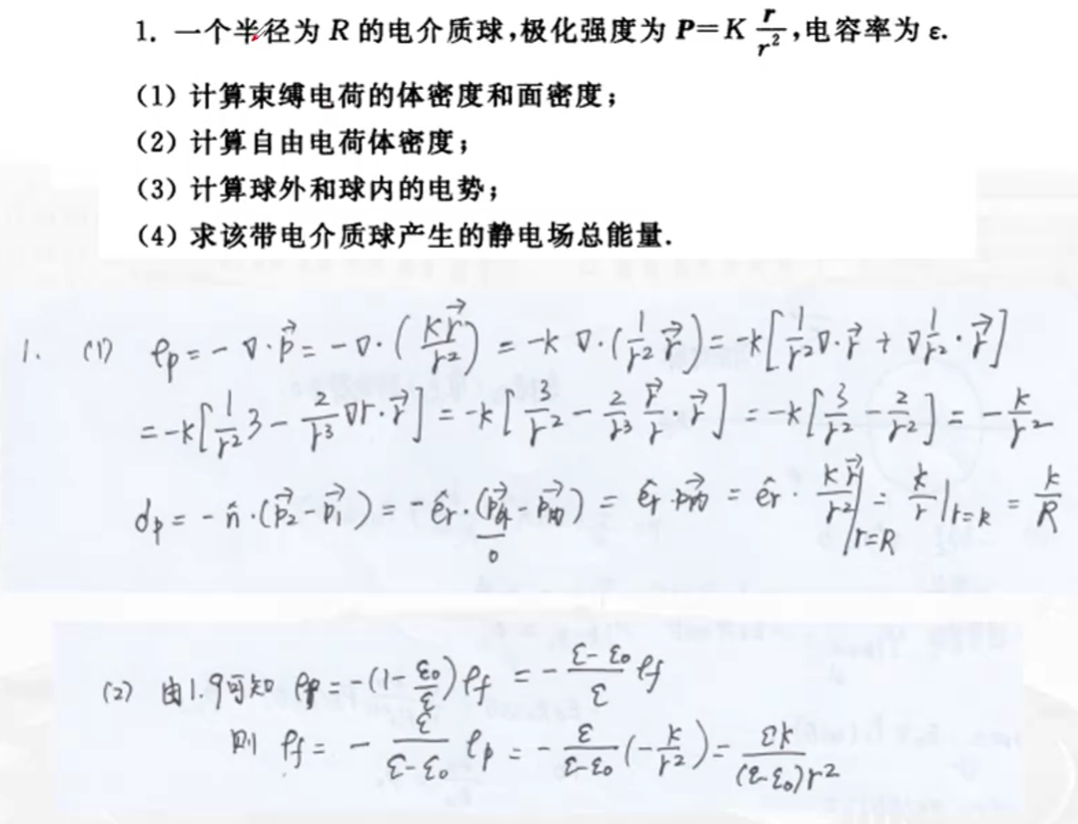 1. 一个半径为 R 的电介质球,极化强度为 P=K r/r²,电容率为 ε.
(1) 计算束缚电荷的体密度和面密度;
(2) 计算自由电荷体密度;
(3) 计算球外和球内的电势;
(4) 求该带电介质球产生的静电场总能量.
1. (1) ρp = -∇·P⃗ = -∇·(Kr⃗/r²) = -K∇·(1/r² r⃗) = -K[1/r² ∇·r⃗ + ∇1/r²·r⃗]
= -K[1/r² 3 - 2/r³ ∇r·r⃗] = -K[3/r² - 2/r³ r⃗/r·r⃗] = -K[3/r² - 2/r²] = -K/r²
σp = -n̂·(P⃗2-P⃗1) = -êr·(P⃗外-P⃗内) = êr·P⃗内 = êr·Kr⃗/r²|r=R = K/r|r=R = K/R
0
(2) 由1.9可知 ρp = -(1-ε0/ε)ρf = -(ε-ε0)/ε ρf
则 ρf = -ε/(ε-ε0) ρp = -ε/(ε-ε0) (-K/r²) = εK/((ε-ε0)r²)